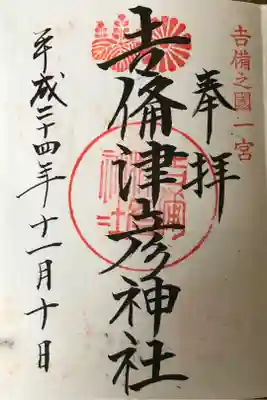 吉備之國一宮
奉拝
吉備津彦神社
平成二十四年十一月十日